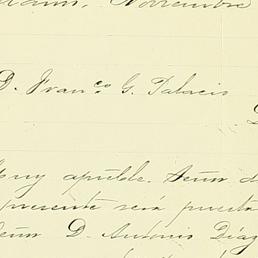 Noviembre
D. Franco G. Palacio
Muy apreble. Señor
presente será puesta
Señor D. Antonio Díaz